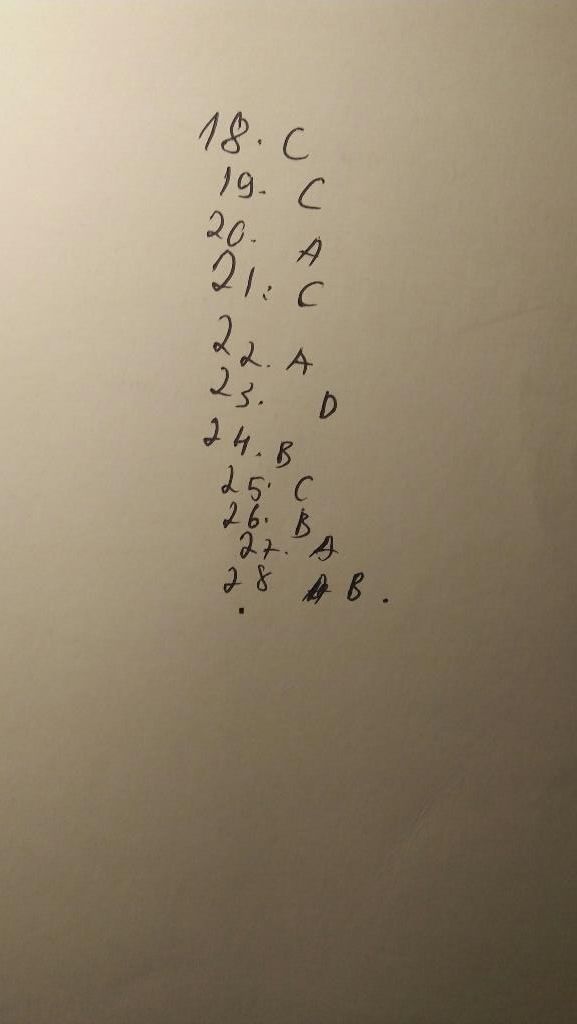 18. C
19. C
20. A
21. C
22. A
23. D
24. B
25. C
26. B
27. A
28 B.